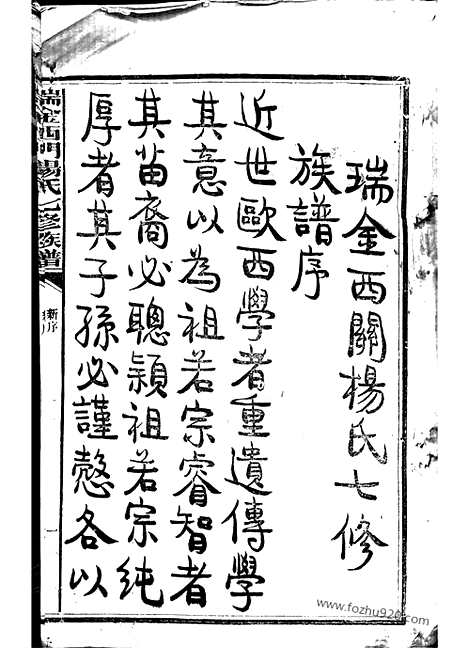 瑞金西關楊氏七修
族譜序
近世歐西學者重遺傳學
其意以為祖若宗睿智者
其苗裔必聰穎祖若宗純
厚者其子孫必謹愨各以
瑞金西門楊氏七修族譜
新序
一
www.fozhu920.com